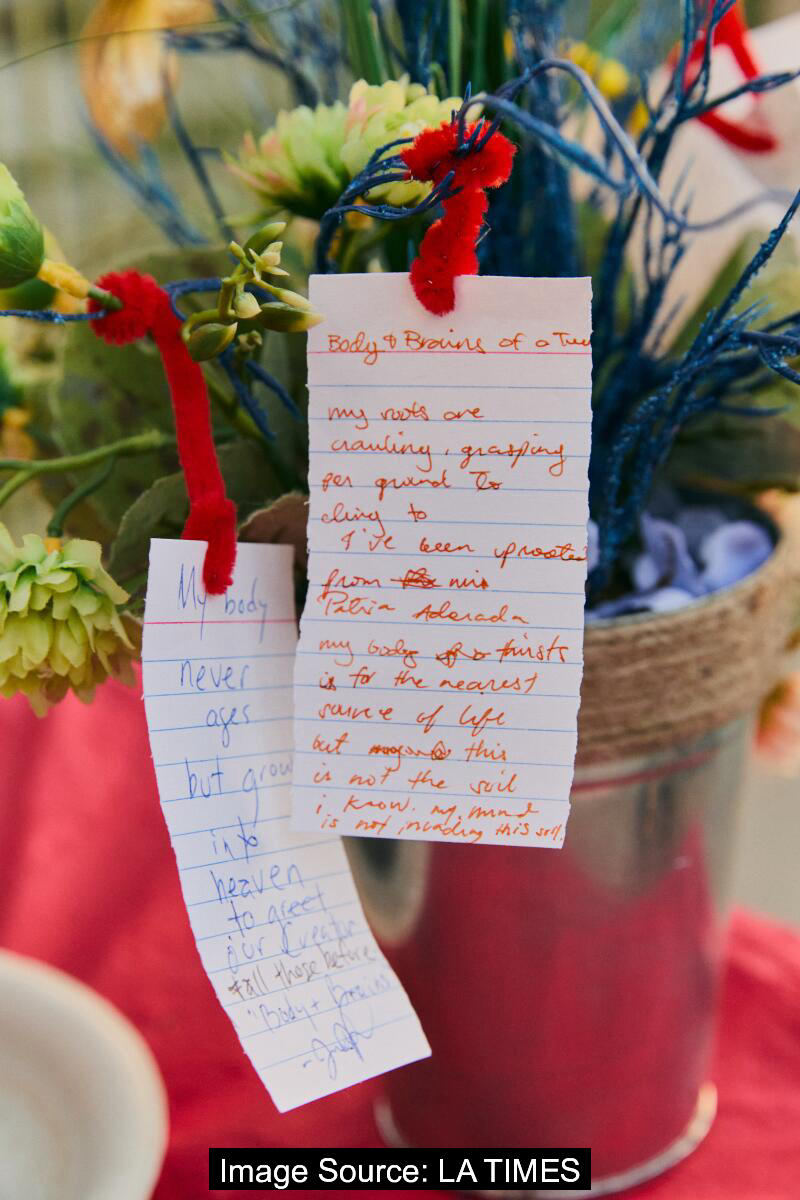 Body & Brains of a Tree
my roots are
crawling, grasping
for ground to
cling to
I've been uprooted
from mi
Patria Adorada
my body thirsts
is for the nearest
source of life
but this
is not the soil
i know. my mind
is not invading this soil.
My body
never
ages
but grow
into
heaven
to greet
our Creator
+ all those before
"Body + Brains
Image Source: LA TIMES